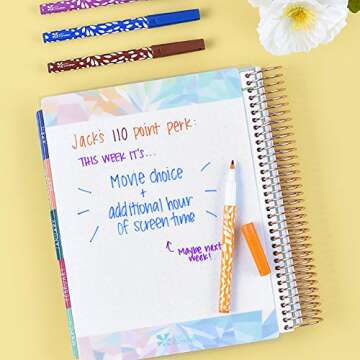 Jack's 110 point perk:
THIS WEEK IT'S...
Movie choice
+
additional hour
of screen time
Maybe next
week!